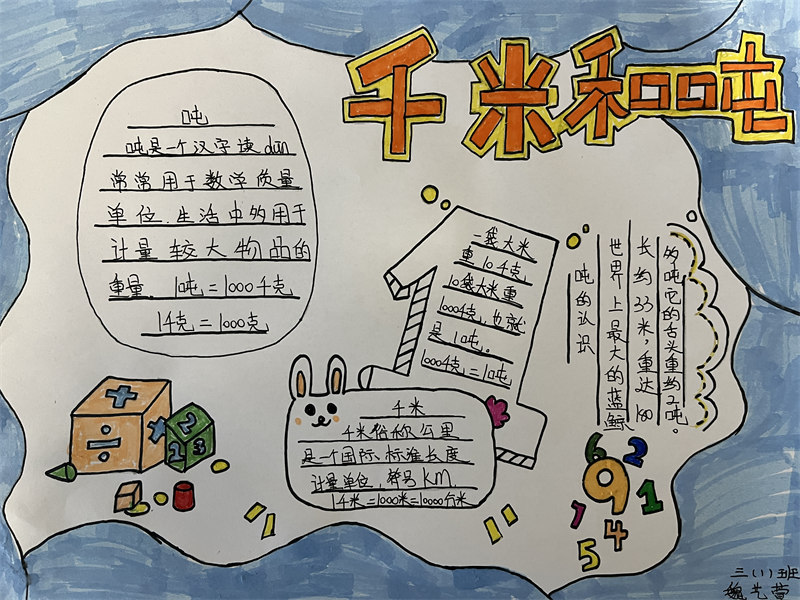 千米和吨
吨
吨是一个汉字读dūn
常常用于数学质量
单位.生活中多用于
计量较大物品的
重量.1吨=1000千克
1千克=1000克
一袋大米
重10千克,
10袋大米重
1000千克,也就
是1吨。
1000千克=10吨
吨的认识
世界上最大的蓝鲸
长约33米,重达180
多吨它的舌头重约2吨。
千米
千米俗称公里
是一个国际标准长度
计量单位,符号km.
1千米=1000米=10000分米
+
÷
×
2
2 3
6 2
9
1 1
4
5
三(1)班